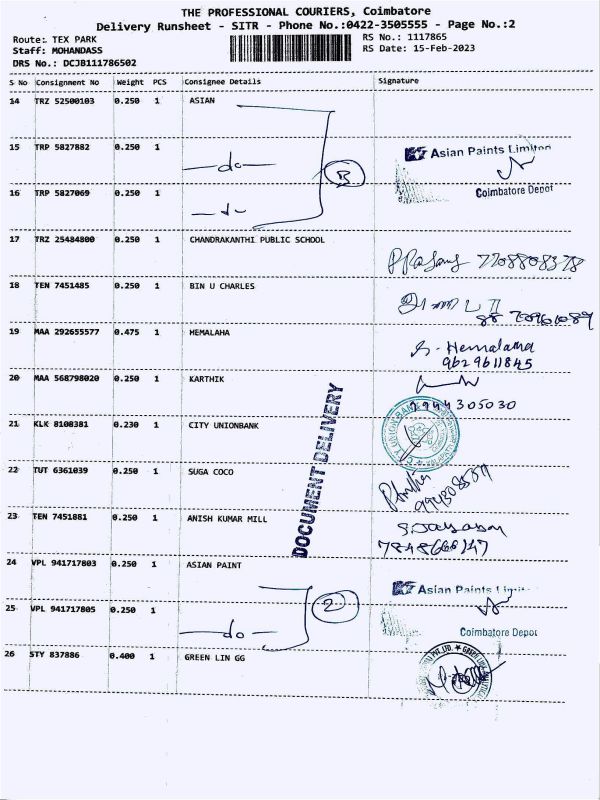 THE PROFESSIONAL COURIERS, Coimbatore
Delivery Runsheet - SITR - Phone No.:0422-3505555 - Page No.:2
Route: TEX PARK RS No.: 1117865
Staff: MOHANDASS RS Date: 15-Feb-2023
DRS No.: DCJB111786502
S No Consignment No Weight PCS Consignee Details Signature
14 TRZ 52500103 0.250 1 ASIAN
15 TRP 5827882 0.250 1 —do— Asian Paints Limited
3
16 TRP 5827069 0.250 1 Coimbatore Depot
17 TRZ 25484800 0.250 1 CHANDRAKANTHI PUBLIC SCHOOL
7708808378
18 TEN 7451485 0.250 1 BIN U CHARLES
19 MAA 292655577 0.475 1 HEMALAHA S. Hemalama
9629611845
20 MAA 568798020 0.250 1 KARTHIK
305030
21 KLK 8108381 0.230 1 CITY UNIONBANK
22 TUT 6361039 0.250 1 SUGA COCO
DOCUMENT DELIVERY
23 TEN 7451881 0.250 1 ANISH KUMAR MILL
24 VPL 941717803 0.250 1 ASIAN PAINT
Asian Paints Limit
25 VPL 941717805 0.250 1 —do— 2
Coimbatore Depot
26 STY 837886 0.400 1 GREEN LIN GG